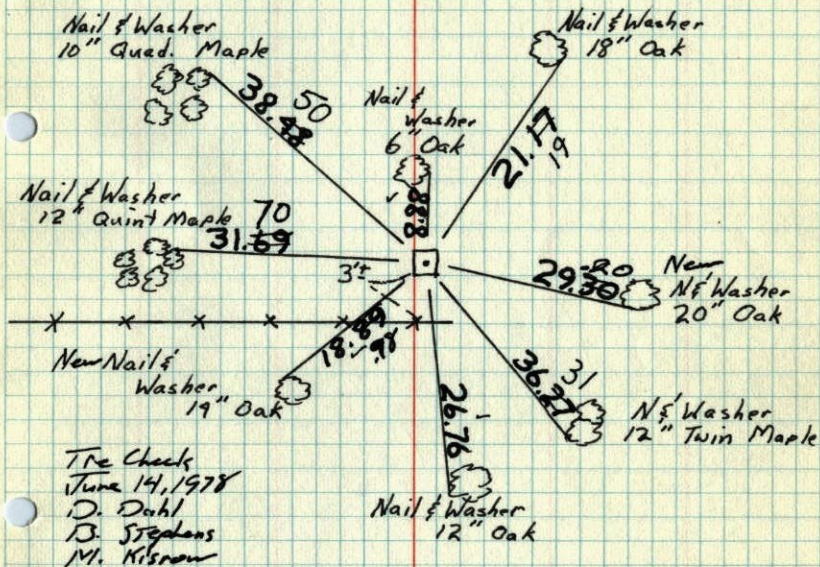 Nail & Washer
10" Quad. Maple
38.48
50
Nail &
Washer
6" Oak
8.88
Nail & Washer
18" Oak
21.17
19
Nail & Washer
12" Quint Maple
70
31.69
3'±
29.30
New
N & Washer
20" Oak
18.89
.98
New Nail &
Washer
14" Oak
36.27
31
N & Washer
12" Twin Maple
26.76
Nail & Washer
12" Oak
Tie Check
June 14, 1978
D. Dahl
B. Stephens
M.